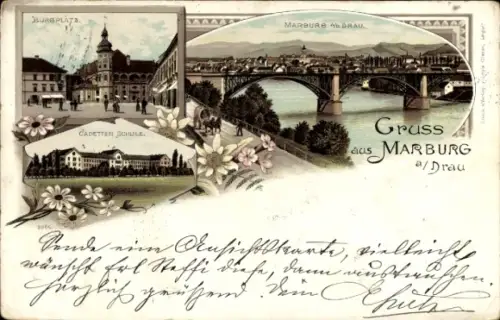 BURGPLATZ.
MARBURG A/D DRAU.
CADETTEN SCHULE.
Gruss
aus MARBURG
a/Drau
Sende eine Ansichtskarte, vielleicht
wünscht Frl Steffi diese, dann austauschen.
Herzlich grüssend. Dein